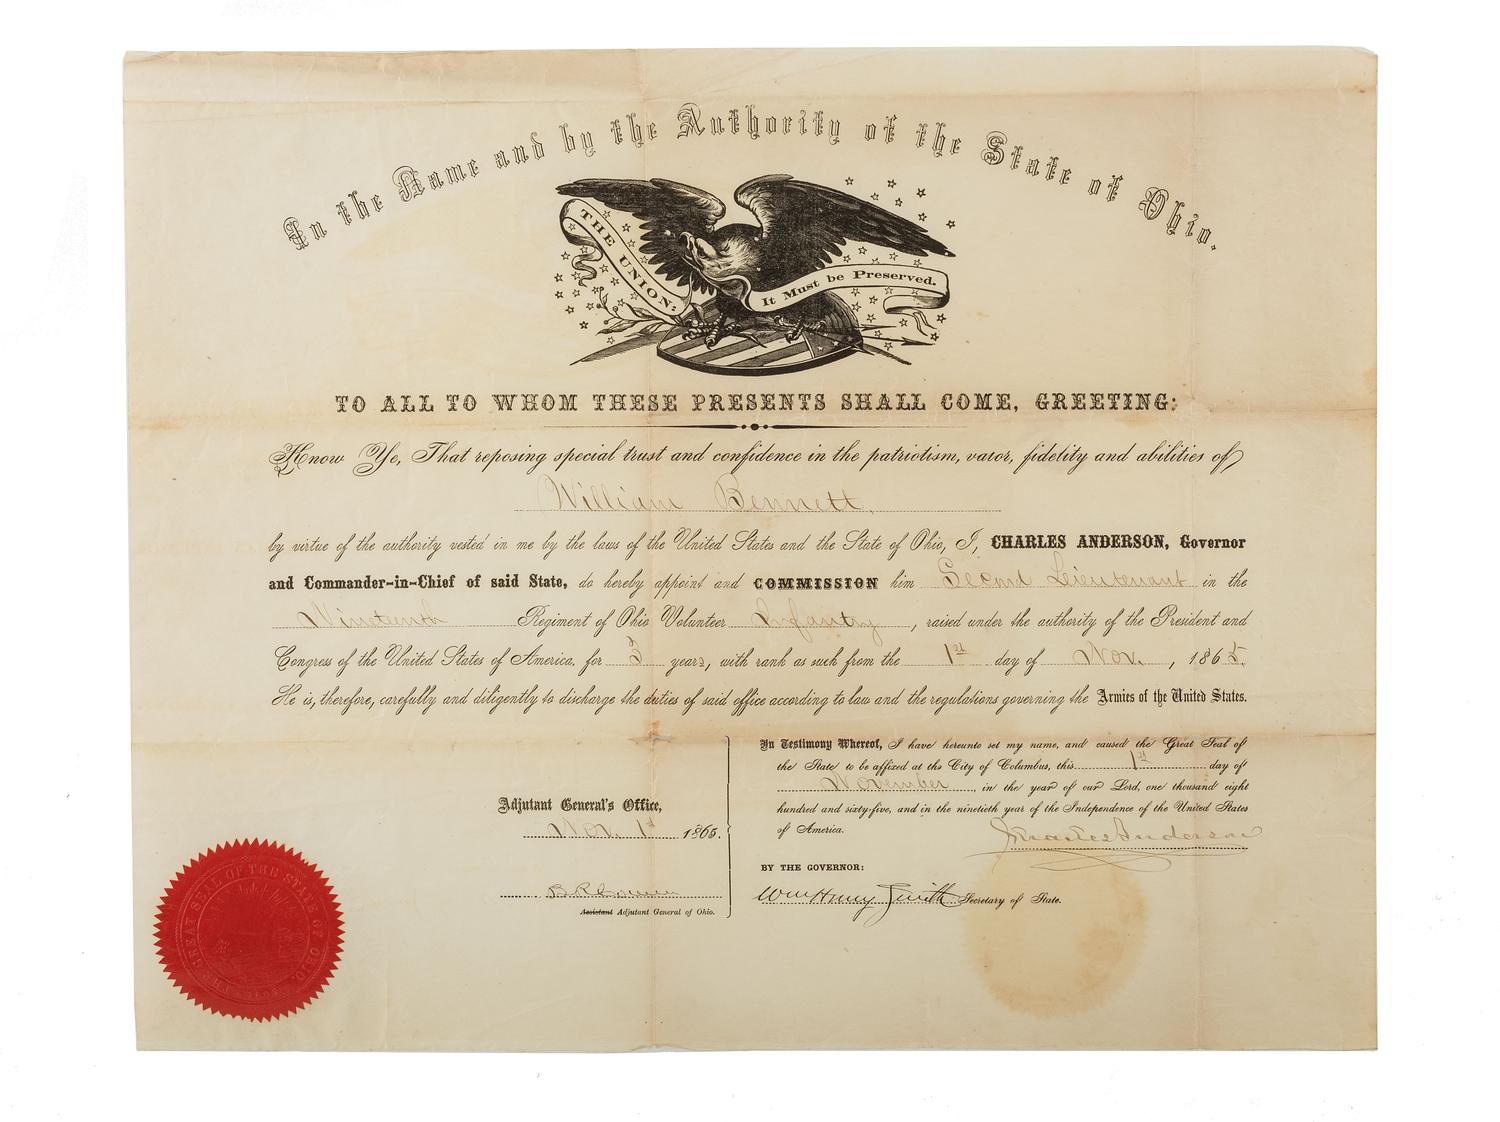 In the Name and by the Authority of the State of Ohio.
THE UNION:
It Must be Preserved.
TO ALL TO WHOM THESE PRESENTS SHALL COME, GREETING:
Know Ye, That reposing special trust and confidence in the patriotism, valor, fidelity and abilities of
William Bennett.
by virtue of the authority vested in me by the laws of the United States and the State of Ohio, I, CHARLES ANDERSON, Governor
and Commander-in-Chief of said State, do hereby appoint and COMMISSION him Second Lieutenant in the
Nineteenth Regiment of Ohio Volunteer Infantry, raised under the authority of the President and
Congress of the United States of America, for 3 years, with rank as such from the 1st day of Nov., 1865.
He is, therefore, carefully and diligently to discharge the duties of said office according to law and the regulations governing the Armies of the United States.
In Testimony Whereof, I have hereunto set my name, and caused the Great Seal of
the State to be affixed at the City of Columbus, this 1st day of
November, in the year of our Lord, one thousand eight
hundred and sixty-five, and in the ninetieth year of the Independence of the United States
of America.
Charles Anderson
BY THE GOVERNOR:
Wm Henry Smith Secretary of State.
Adjutant General's Office,
Nov. 1st 1865.
B R Cowen
Assistant Adjutant General of Ohio.
THE GREAT SEAL OF THE STATE OF OHIO.